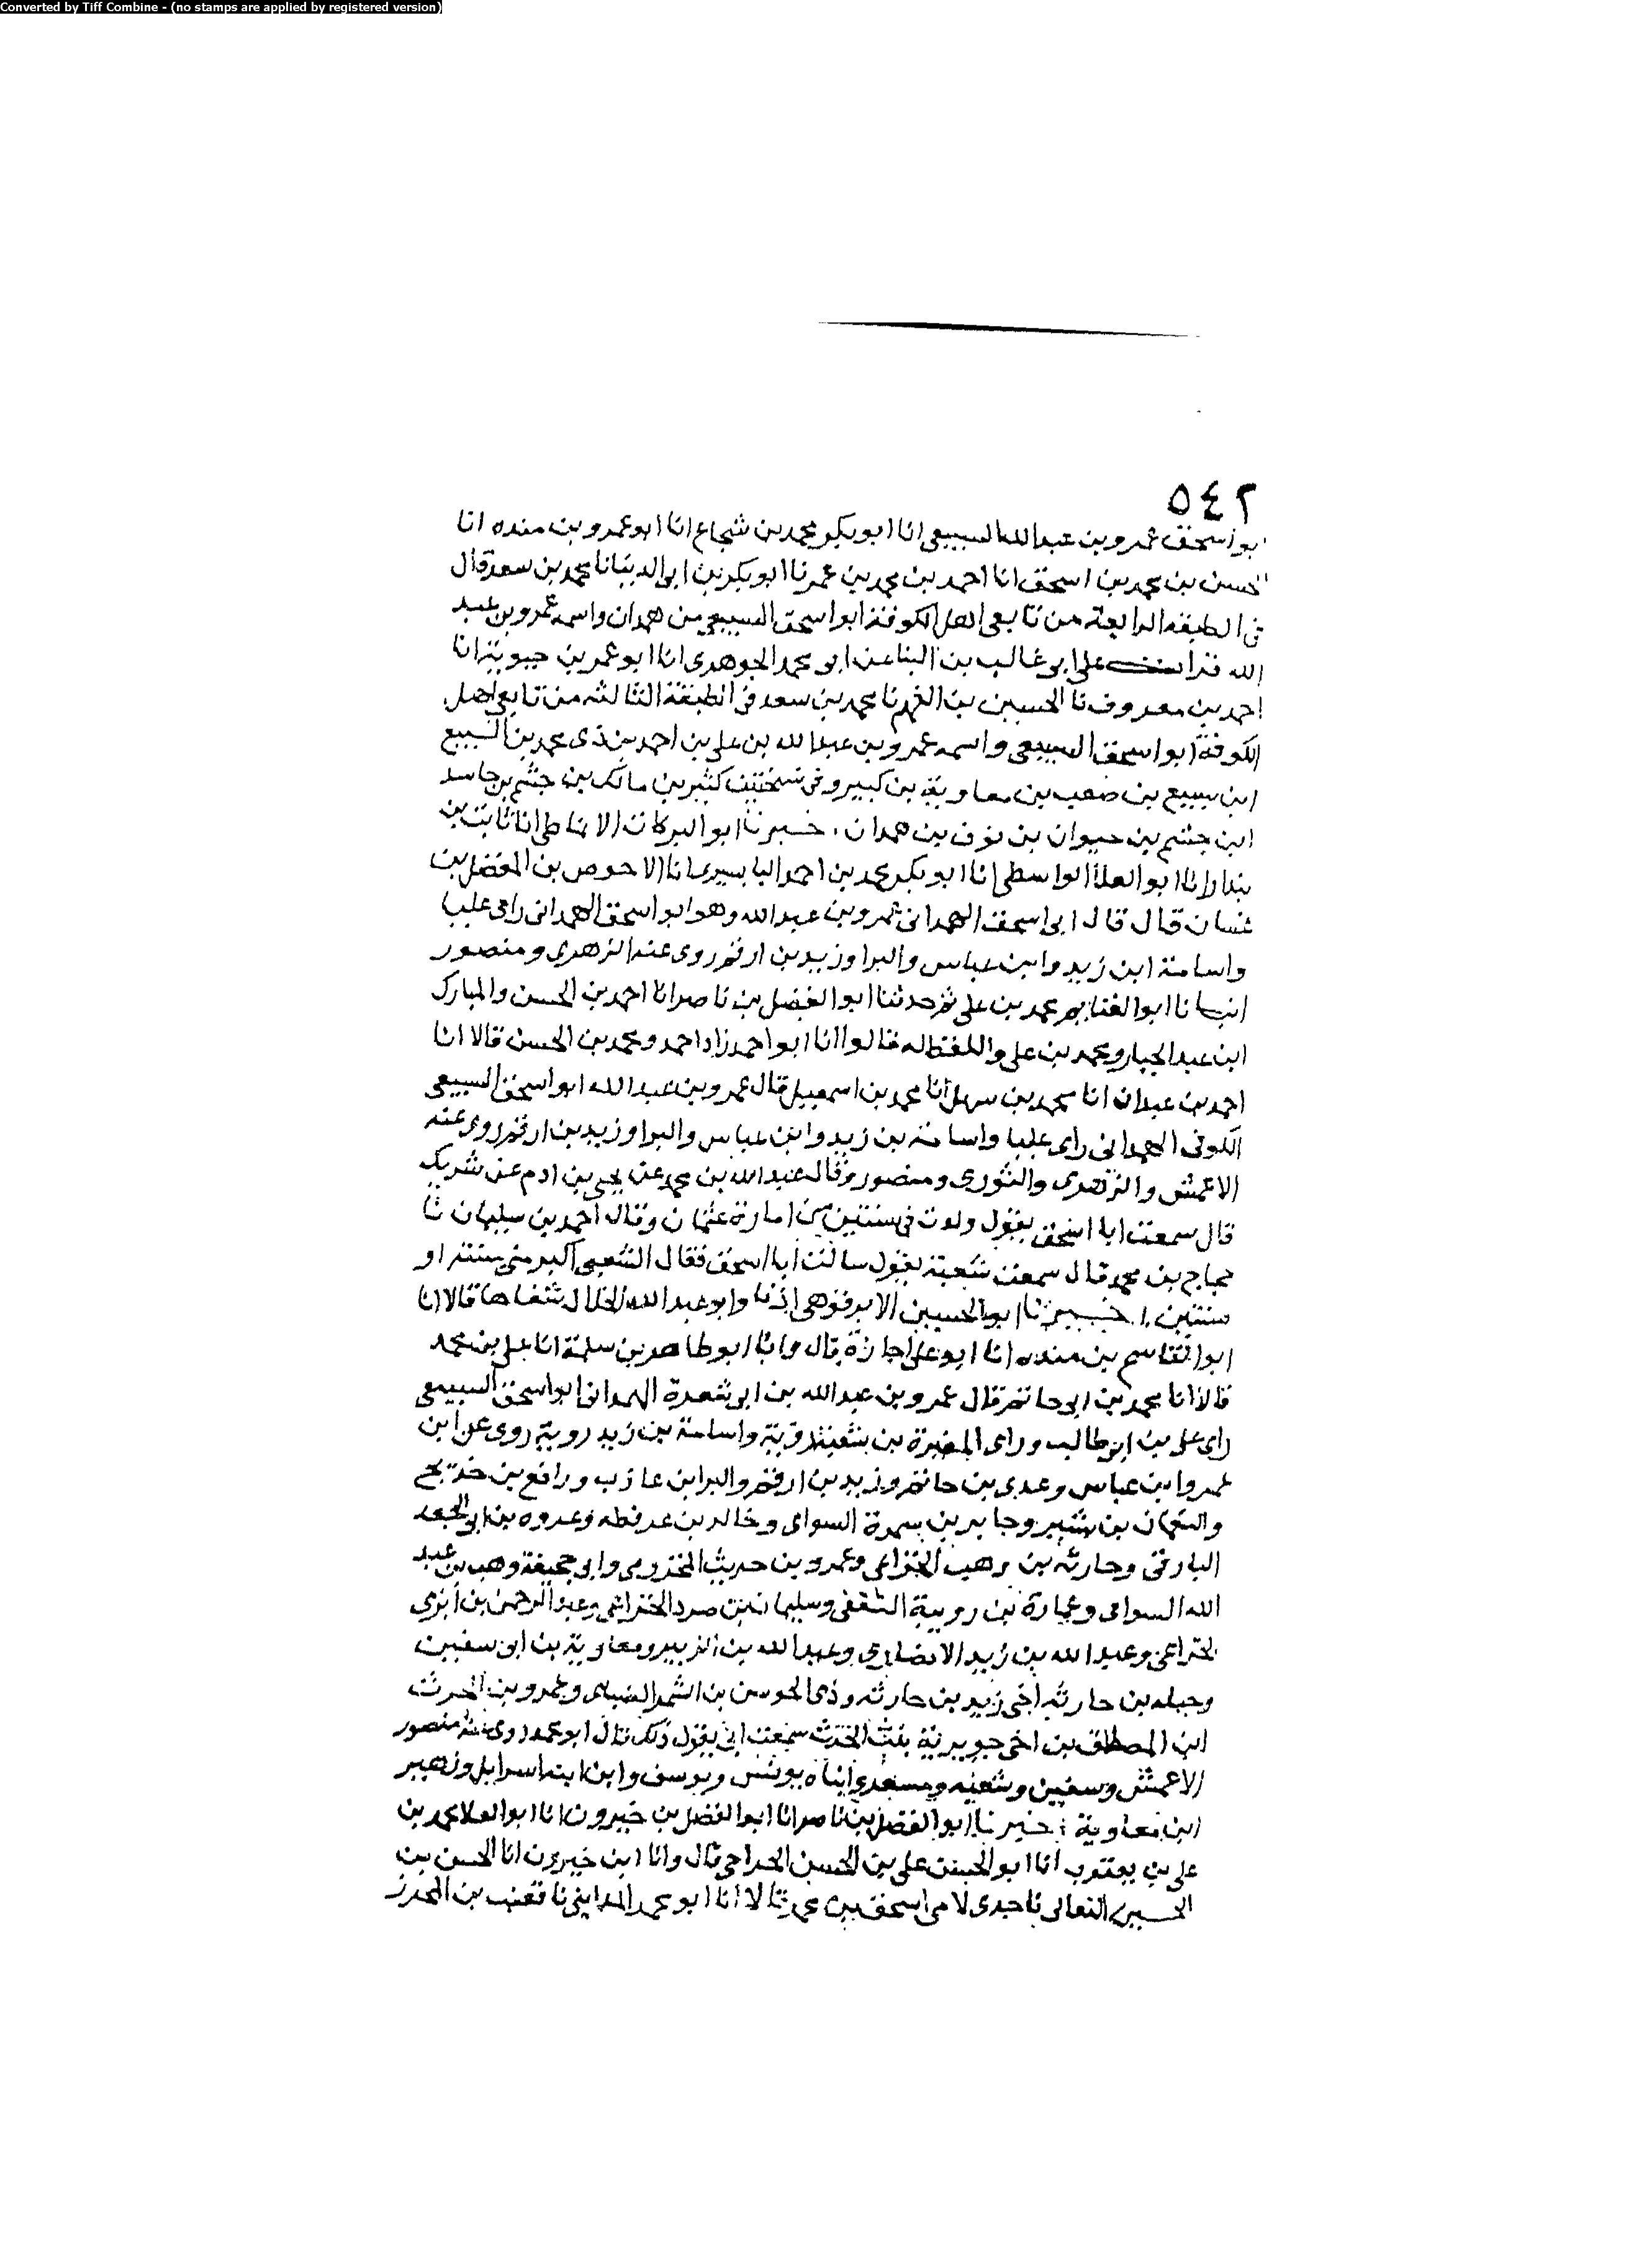 Converted by Tiff Combine - (no stamps are applied by registered version)
٥٤٢
بو اسحق عمرو بن عبد الله السبيعى انا ابو بكر محمد بن شجاع انا ابو عمرو بن منده انا
الحسن بن محمد بن اسحق انا احمد بن محمد بن عمر نا ابو بكر بن ابى الدنيا نا محمد بن سعد قال
فى الطبقه الرابعة من تابعى اهل الكوفة ابو اسحق السبيعى من همدان واسمه عمرو بن عبد
الله قرات على ابى غالب بن البنا عن ابى محمد الجوهرى انا ابو عمر بن حيوية انا
احمد بن معروف نا الحسين بن الفهم نا محمد بن سعد فى الطبقة الثالثه من تابعى اهل
الكوفة ابو اسحق السبيعى واسمه عمرو بن عبد الله بن على بن احمد بن ذى محمد بن السبيع
ابن سبيع بن صعب بن معاوية بن كبير وفى نسختين كثير بن مالك بن جشم بن حاسد
ابن جشم بن حيوان بن نوف بن همدان . خبرنا ابو البركات الانماطى انا ثابت بن
بندار انا ابو العلا الواسطى انا ابو بكر محمد بن احمد البابسيرى انا الاحوص بن المفضل بن
غسان قال قال ابى اسحق الهمدانى عمرو بن عبد الله وهو ابو اسحق الهمدانى راى عليا
واسامة ابن زيد وابن عباس والبرا وزيد بن ارقم روى عنه الزهرى ومنصور
انبانا ابو الغنايم محمد بن على ثم حدثنا ابو الفضل بن ناصر انا احمد بن الحسن والمبارك
ابن عبد الجبار ومحمد بن على واللفظ له قالوا انا ابو احمد زاد احمد ومحمد بن الحسن قالا انا
احمد بن عبدان انا محمد بن سهل انا محمد بن اسمعيل قال عمرو بن عبد الله ابو اسحق السبيعى
الكوفى الهمدانى راى عليا واسامة بن زيد وابن عباس والبرا وزيد بن ارقم روى عنه
الاعمش والزهرى والثورى ومنصور قال عبد الله بن محمد عن يحيى بن ادم عن شريك
قال سمعت ابا اسحق يقول ولدت فى سنتين من امارة عثمان وقال احمد بن سليمان نا
حجاج بن محمد قال سمعت شعبة يقول سالت ابا اسحق فقال الشعبى اكبر منى بسنة او
سنتين . خبرنا ابو الحسين الابرقوهى اذنا وابو عبد الله الخلال شفاها قالا انا
ابو القاسم بن منده انا ابو على اجازة قال وانا ابو طاهر بن سلمة انا على بن محمد
قالا انا محمد بن ابى حاتم قال عمرو بن عبد الله بن ابى شعرة الهمدانى ابو اسحق السبيعى
راى على بن ابى طالب وراى المغيرة بن شعبة رويته واسامة بن زيد روية روى عن ابن
عمر وابن عباس وعدى بن حاتم وزيد بن ارقم والبرا بن عازب ورافع بن خديج
والنعمان بن بشير وجابر بن سمرة السواى وخالد بن عرفطه وعروه بن ابى الجعد
البارقى وحارثه بن وهب الخزاعى وعمرو بن حريث المخزومى وابى جحيفة وهب بن عبد
الله السواى وعمارة بن رويبة الثقفى وسليمان بن صرد الخزاعى وعبد الرحمن بن ابزى
الخزاعى وعبد الله بن زيد الانصارى وعبد الله بن الزبير ومعاوية بن ابى سفين
وجبله بن حارثه اخى زيد بن حارثه وذى الجوشن بن الشمر الضبابى وعمرو بن الحرث
ابن المصطلق بن اخى جويرية بنت الحرث سمعت ابى يقول ذلك قال ابو محمد روى عنه منصور
الاعمش وسفين وشعبه ومسعر وابناه يونس ويوسف وابن ابنه اسرايل وزهير
ابن معاوية : خبرنا ابو الفضل بن ناصر انا ابو الفضل بن خيرون انا ابو العلا محمد بن
على بن يعقوب انا ابو الحسن على بن الحسن الجراحى قال وانا ابن خيرون انا الحسن بن
الحسين النعالى نا جدى لامى اسحق بن محمد قالا انا ابو محمد المداينى نا قعنب بن المحرز